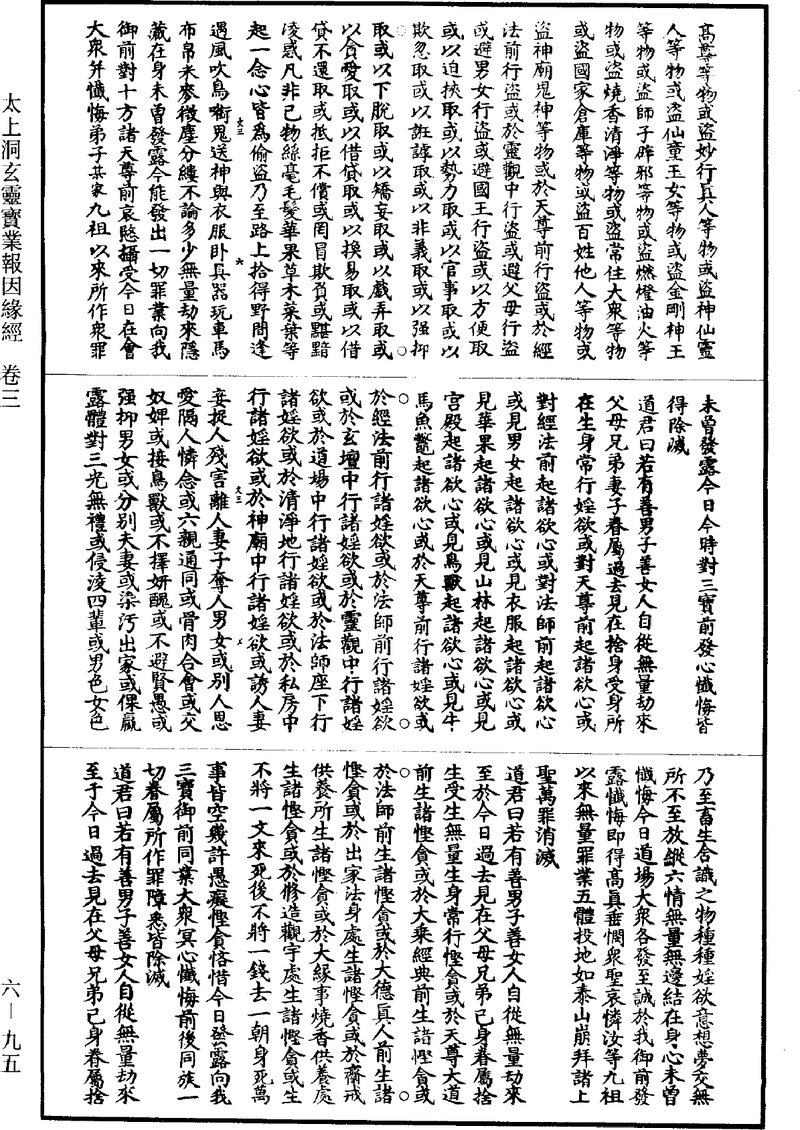 太上洞玄靈寶業報因緣經 卷三
六—九五
高尊等物或盜妙行真人等物或盜神仙靈
人等物或盜仙童玉女等物或盜金剛神王
等物或盜師子辟邪等物或盜燃燈油火等
物或盜燒香清淨等物或盜常住大衆等物
或盜國家倉庫等物或盜百姓他人等物或
盜神廟鬼神等物或於天尊前行盜或於經
法前行盜或於靈觀中行盜或避父母行盜
或避男女行盜或避國王行盜或以方便取
或以迫挾取或以勢力取或以官事取或以
欺忽取或以誑諕取或以非義取或以强抑
取或以下脫取或以矯妄取或以戲弄取或
以貪愛取或以借貸取或以換易取或以借
貸不還取或抵拒不償或罔冒欺負或黮黯
淩惑凡非己物絲毫毛髮華果草木菜葉等
起一念心皆爲偷盜乃至路上拾得野間逢
遇風吹鳥銜鬼送神與衣服卧具器玩車馬
布帛米麥微塵分縷不論多少無量劫來隱
藏在身未曾發露今能發出一切罪業向我
御前對十方諸天尊前哀愍攝受今日在會
大衆并懺悔弟子某家九祖以來所作衆罪
未曾發露今日今時對三寶前發心懺悔皆
得除滅
道君曰若有善男子善女人自從無量劫來
父母兄弟妻子眷屬過去見在捨身受身所
在生身常行婬欲或對天尊前起諸欲心或
對經法前起諸欲心或對法師前起諸欲心
或見男女起諸欲心或見衣服起諸欲心或
見華果起諸欲心或見山林起諸欲心或見
宮殿起諸欲心或見鳥獸起諸欲心或見牛
馬魚鱉起諸欲心或於天尊前行諸婬欲或
於經法前行諸婬欲或於法師前行諸婬欲
或於玄壇中行諸婬欲或於靈觀中行諸婬
欲或於道場中行諸婬欲或於法師座下行
諸婬欲或於清淨地行諸婬欲或於私房中
行諸婬欲或於神廟中行諸婬欲或誘人妻
妾捉人殘害離人妻子奪人男女或別人恩
愛隔人憐念或六親通同或骨肉合會或交
奴婢或接鳥獸或不擇妍醜或不避賢愚或
强抑男女或分別夫妻或染污出家或倮羸
露體對三光無禮或侵淩四輩或男色女色
乃至畜生含識之物種種婬欲意想夢交無
所不至放縱六情無量無邊結在身心未曾
懺悔今日道場大衆各發至誠於我御前發
露懺悔即得高真垂憫衆聖哀憐汝等九祖
以來無量罪業五體投地如泰山崩拜諸上
聖萬罪消滅
道君曰若有善男子善女人自從無量劫來
至於今日過去見在父母兄弟己身眷屬捨
生受生無量生身常行慳貪或於天尊大道
前生諸慳貪或於大乘經典前生諸慳貪或
於法師前生諸慳貪或於大德真人前生諸
慳貪或於出家法身處生諸慳貪或於齋戒
供養所生諸慳貪或於大緣事燒香供養處
生諸慳貪或於修造觀宇處生諸慳貪或生
不將一文來死後不將一錢去一朝身死萬
事皆空幾許愚癡慳貪恡惜今日發露向我
三寶御前同業大衆冥心懺悔前後同族一
切眷屬所作罪障悉皆除滅
道君曰若有善男子善女人自從無量劫來
至于今日過去見在父母兄弟己身眷屬捨